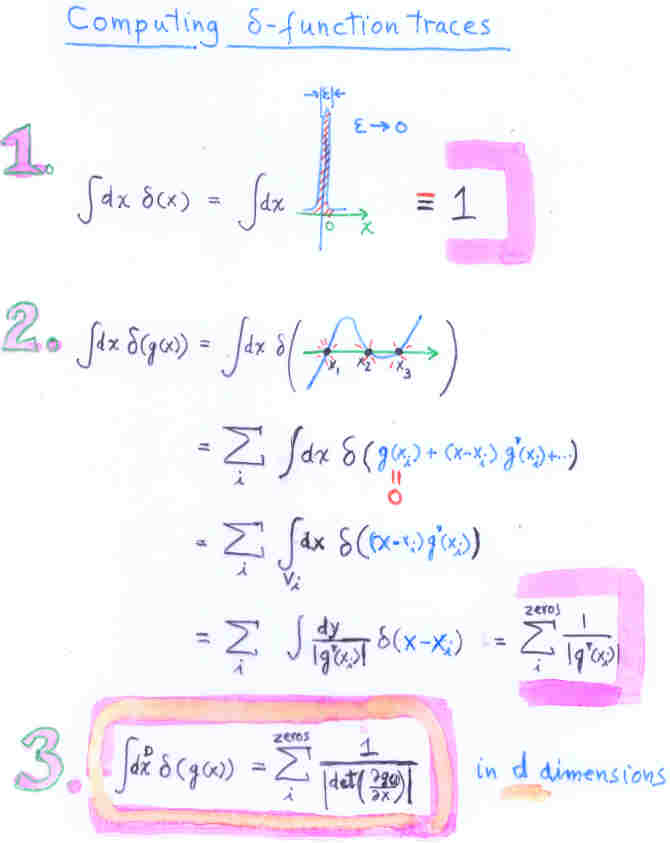 Computing δ-function traces
→|ε|←
ε → 0
1. ∫dx δ(x) = ∫dx ≡ 1
0 x
2. ∫dx δ(g(x)) = ∫dx δ( )
x₁ x₂ x₃
= Σ_i ∫dx δ(g(x_i) + (x-x_i) g'(x_i)+...)
=
0
= Σ_i ∫_{V_i} dx δ((x-x_i)g'(x_i))
= Σ_i ∫ dy/|g'(x_i)| δ(x-x_i) = Σ_i^{zeros} 1/|g'(x_i)|
3. ∫dx^D δ(g(x)) = Σ_i^{zeros} 1/|det(∂g(x)/∂x)| in d dimensions